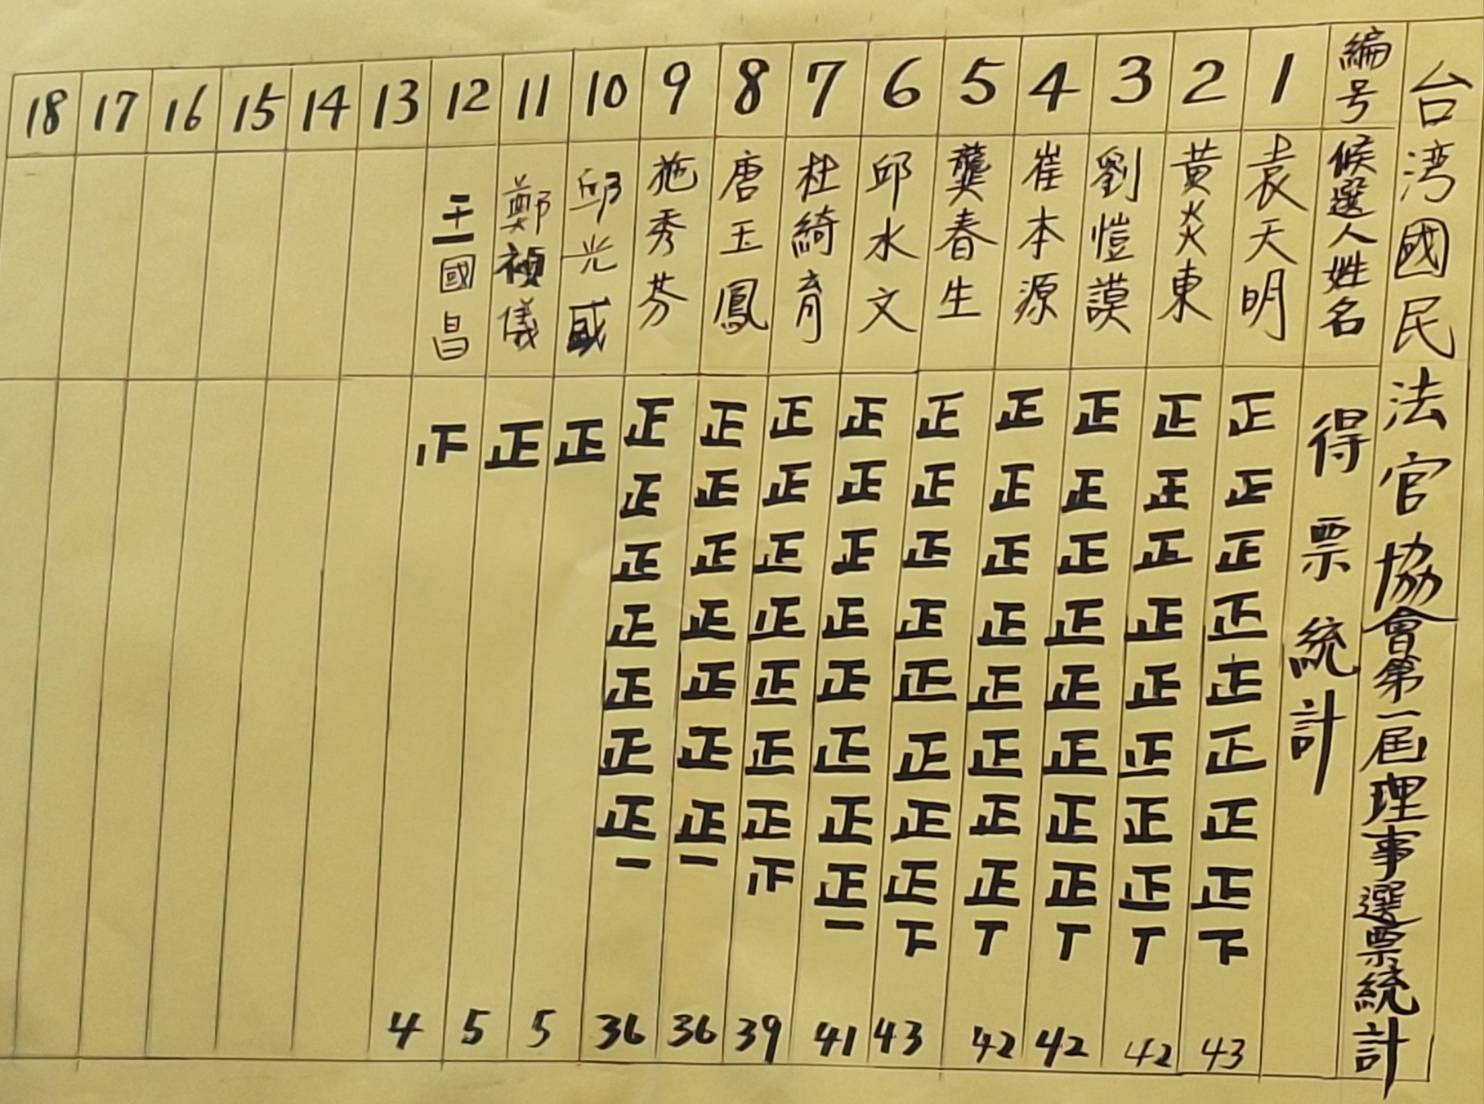 台湾國民法官協會第一屆理事選票統計
編号 候選人姓名 得票統計
1 袁天明 正正正正正正正正下 43
2 黃炎東 正正正正正正正正丅 42
3 劉愷謨 正正正正正正正正丅 42
4 崔本源 正正正正正正正正丅 42
5 龔春生 正正正正正正正正下 43
6 邱水文 正正正正正正正正一 41
7 杜綺育 正正正正正正正 39
8 唐玉鳳 正正正正正正正一 36
9 施秀芬 正正正正正正正一 36
10 邱光盛 正 5
11 鄭禎儀 正 5
12 王國昌 4
13
14
15
16
17
18